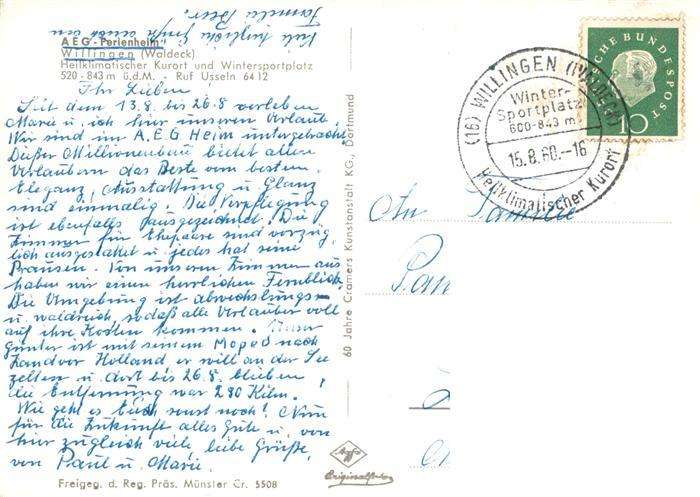 A E G - Ferienheim
Willingen (Waldeck)
Heilklimatischer Kurort und Wintersportplatz
520 - 843 m ü.d.M. - Ruf Usseln 64 12
Ihr Lieben!
Seit dem 13.8 bis 26.8 verleben
Marie u. ich hier unseren Urlaub.
Wir sind im A.E.G Heim untergebracht
Dießer Millionenbau bietet allen
Urlaubern das Beste vom besten.
Eleganz, Ausstattung u Glanz
sind einmalig. Die Verpflegung
ist ebenfalls ausgezeichnet. Die
Zimmer für Ehepaare sind vorzüg,
lich ausgestattet u jedes hat seine
Brausen. Von unserem Zimmer aus
haben wir einen herrlichen Fernblick.
Die Umgebung ist abwechslungs-
u. waldreich, sodaß alle Urlauber voll
auf ihre Kosten kommen. Unser
Günter ist mit seinem Moped nach
Zandvor Holland er will an der See
zelten u. dort bis 26.8. bleiben,
die Entfernung war 280 Kilm.
Wie geht es Euch sonst noch? Nun
für die Zukunft alles Gute u. von
hier zugleich viele liebe Grüße,
von Paul u. Marie.
Freigeg. d. Reg. Präs. Münster Cr. 5508
Familie Beer.
60 Jahre Cramers Kunstanstalt KG., Dortmund
Agfa
Originalfoto
DEUTSCHE BUNDESPOST
10
(16) WILLINGEN (WALDECK)
Winter-
Sportplatz
600-843 m
15.8.60.-16
Heilklimatischer Kurort
An Familie